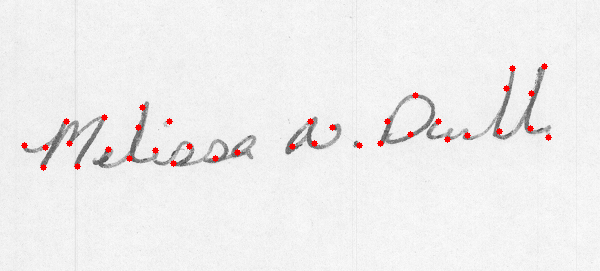 Melissa N. Dull